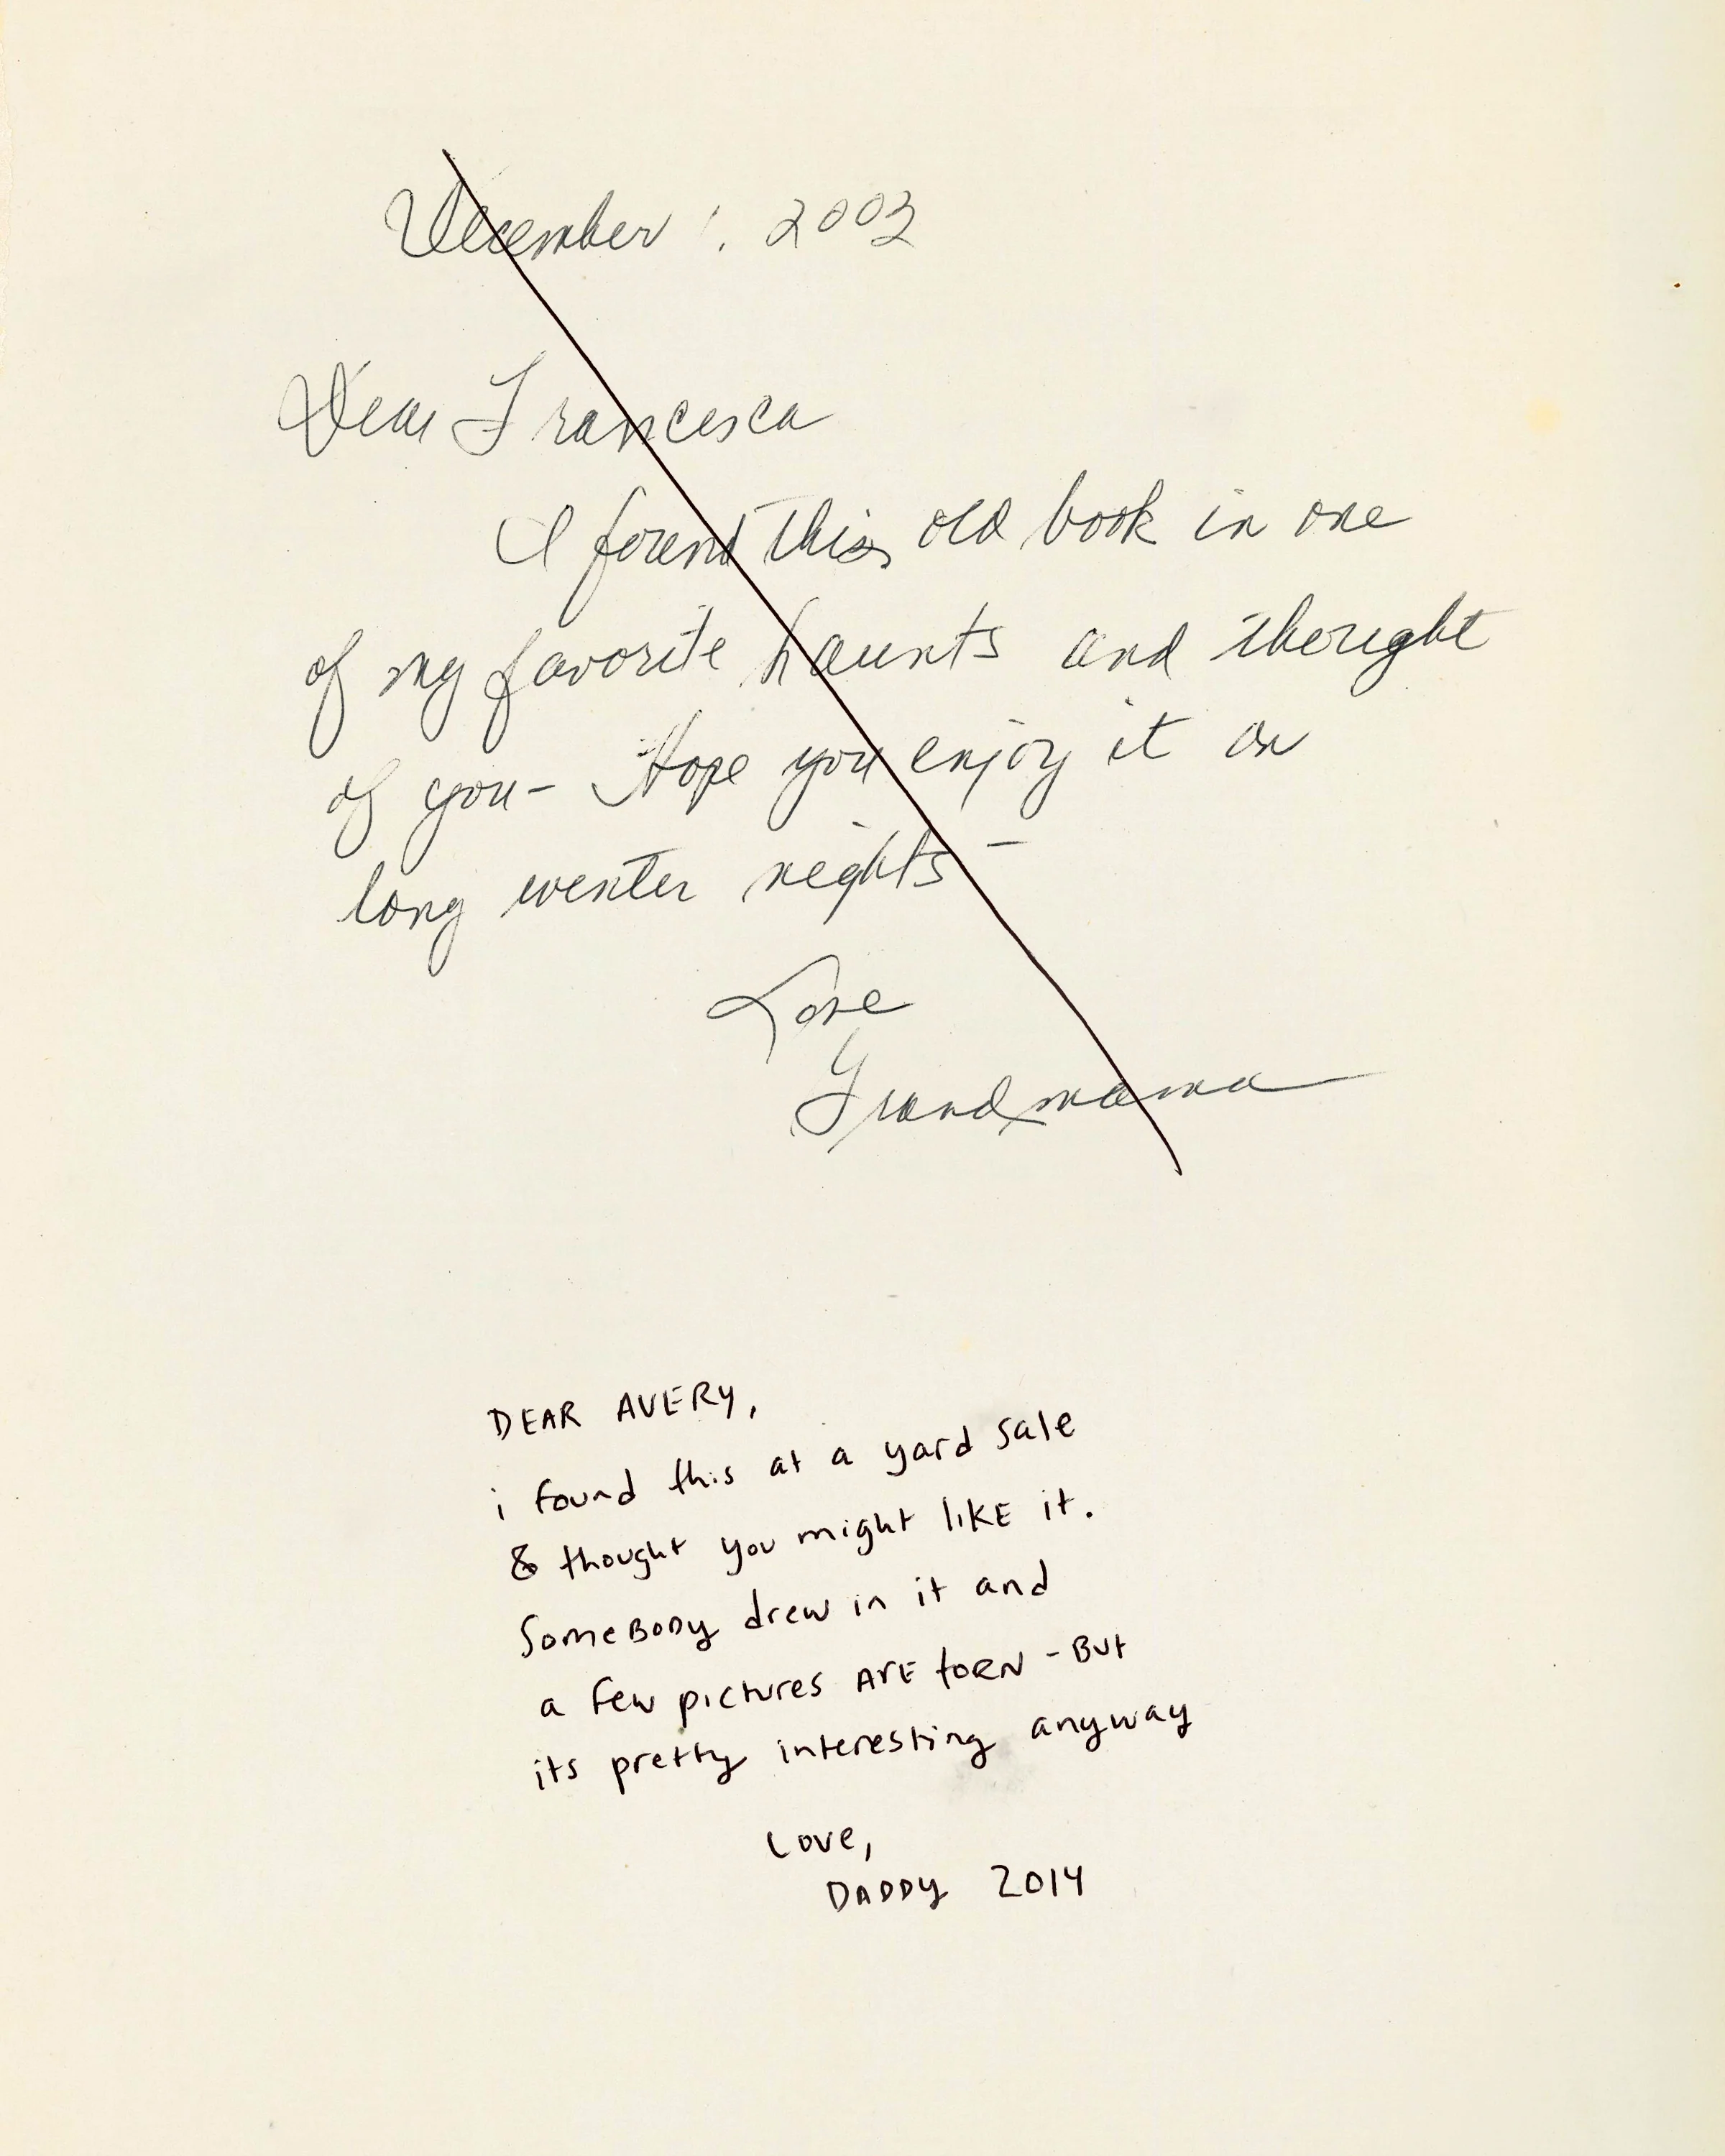 December 1, 2003
Dear Francesca
I found this old book in one
of my favorite haunts and thought
of you- Hope you enjoy it on
long winter nights -
Love
Grandmama
DEAR AVERY,
i found this at a yard sale
& thought you might likE it.
SomeBODy drew in it and
a few pictures ArE toRN - But
its pretty interesting anyway
Love,
DADDy 2014